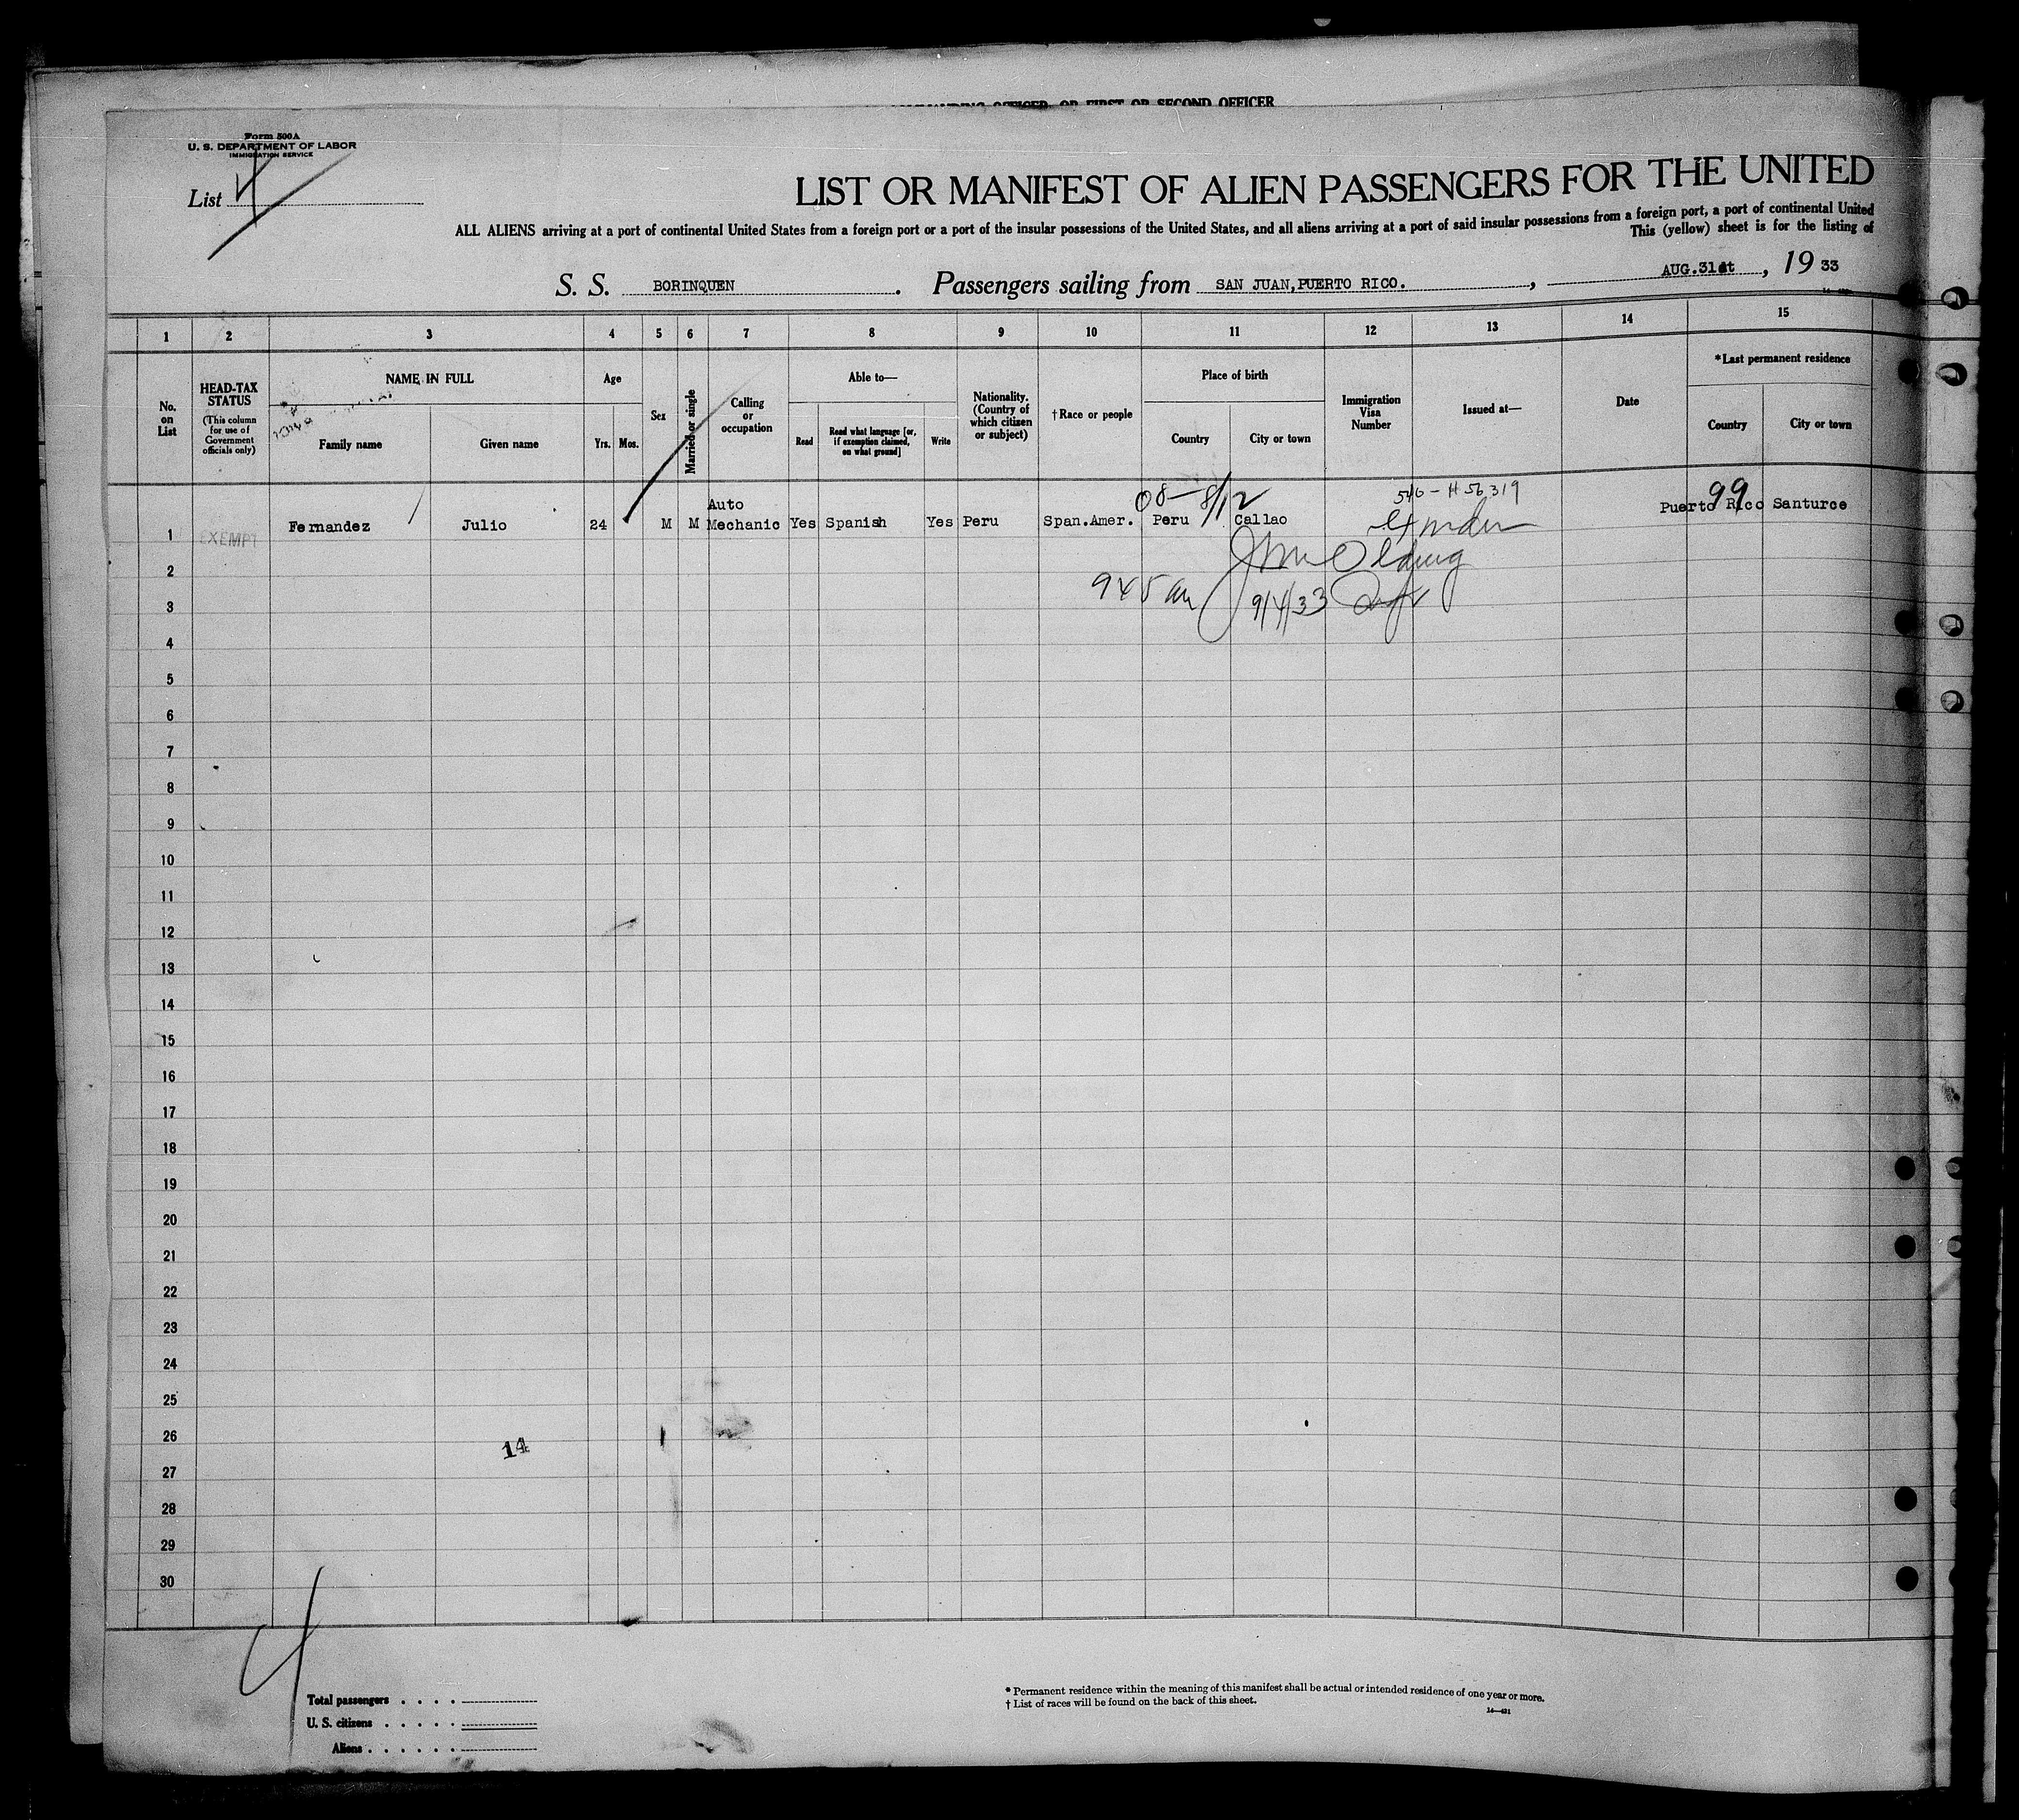 COMMANDING OFFICER, OR FIRST OR SECOND OFFICER
Form 500A
U. S. DEPARTMENT OF LABOR
IMMIGRATION SERVICE
List 4
LIST OR MANIFEST OF ALIEN PASSENGERS FOR THE UNITED
ALL ALIENS arriving at a port of continental United States from a foreign port or a port of the insular possessions of the United States, and all aliens arriving at a port of said insular possessions from a foreign port, a port of continental United
This (yellow) sheet is for the listing of
S. S. BORINQUEN. Passengers sailing from SAN JUAN, PUERTO RICO., AUG.31st, 19 33
1 2 3 4 5 6 7 8 9 10 11 12 13 14 15
No. on List
HEAD-TAX STATUS
(This column for use of Government officials only)
NAME IN FULL
Family name Given name
Age
Yrs. Mos.
Sex
Married or single
Calling or occupation
Able to—
Read
Read what language [or, if exemption claimed, on what ground]
Write
Nationality. (Country of which citizen or subject)
†Race or people
Place of birth
Country City or town
Immigration Visa Number
Issued at—
Date
*Last permanent residence
Country City or town
08-8/12 99
1 EXEMPT Fernandez Julio 24 M M Auto Mechanic Yes Spanish Yes Peru Span.Amer. Peru Callao Puerto Rico Santurce
2
945 am 9/4/33
3
4
5
6
7
8
9
10
11
12
13
14
15
16
17
18
19
20
21
22
23
24
25
26
14
27
28
29
30
4
Total passengers . . . .
U. S. citizens . . . . .
Aliens . . . . . .
* Permanent residence within the meaning of this manifest shall be actual or intended residence of one year or more.
† List of races will be found on the back of this sheet.
14—431